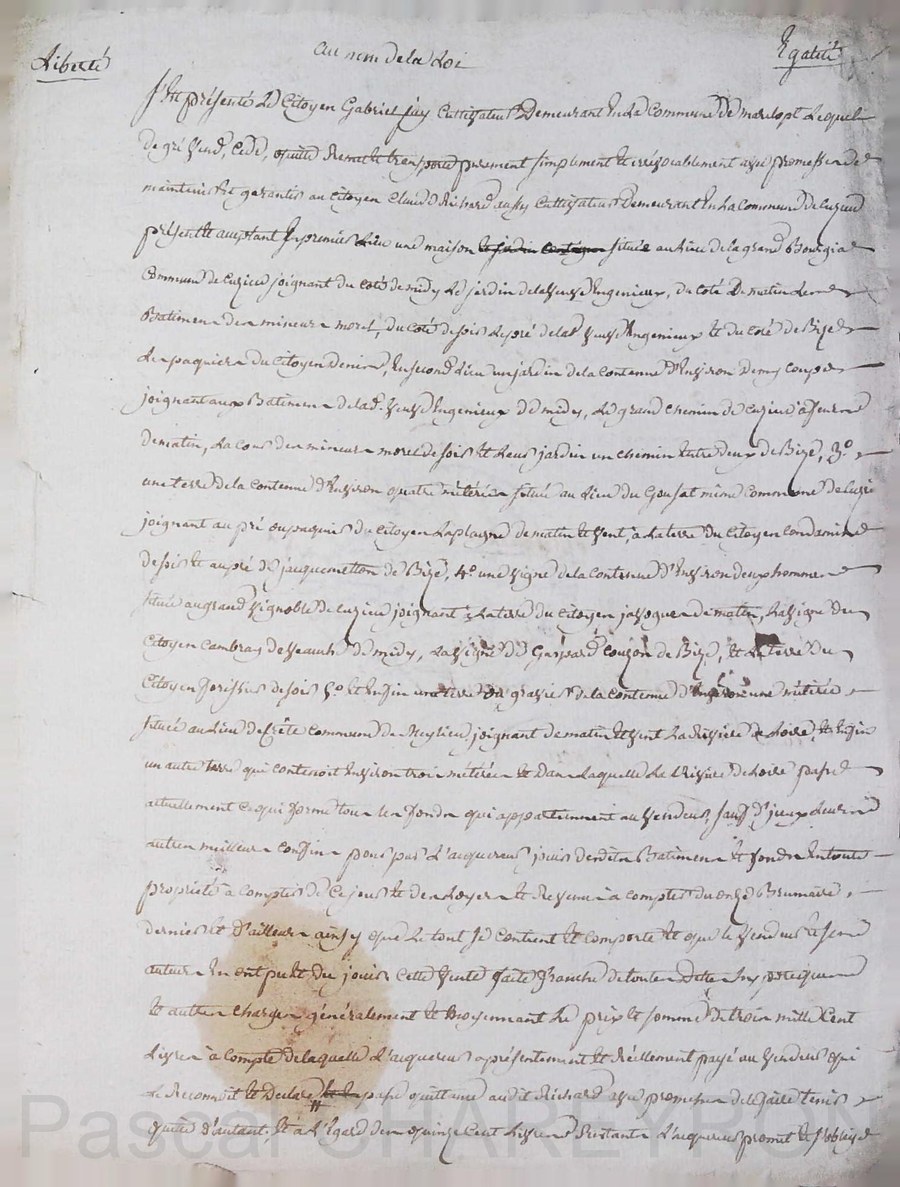 Liberté au nom de la Loi Egalité
S'est présenté Le Citoyen Gabriel juy Cultivateur Demeurant En La Commune De marclopt Lequel
De gré Vend, Cède, quitte Remet et transporte purement simplement et irrévocablement avec promesse de
maintenir et garantir au Citoyen Claude Richard aussy Cultivateur Demeurant En La Commune de Cuzieu
présent et acceptant En premier Lieu une maison située au Lieu de la grand
Commune de Cuzieu joignant du coté de midy Le jardin de la Veuve Ingenieux, du coté De matin Les
Batimens des mineurs morel, du coté de soir Le pré de lad. Veuve Ingenieux et du coté De Bize
Le paquier du Citoyen denis, En second Lieu un jardin de la Contenue D'Environ Demy Coupe
joignant aux Batimens de lad. Veuve Ingenieux de midy, Le grand Chemin de Cuzieu à
De matin, La Cour des mineurs morel de soir et Leur jardin un chemin Entre deux de Bize, 3.º
une terre de la Contenue D'Environ quatre métérées située au Lieu du même Commune De Cuzieu
joignant au pré ou paquier du Citoyen Laplagne de matin et Vent, à La terre du Citoyen Condamine
de soir et au pré de jacquemetton de Bize, 4.º une Vigne de la Contenue D'Environ deux hommes
située au grand Vignoble de Cuzieu joignant à La terre du Citoyen de matin, La Vigne du
Citoyen Cambray de midy, La Vigne de Gaspard Couzon de Bize, et La terre du
Citoyen de soir 5.º Et Enfin une terre de la Contenue D'Environ une métérée
située au Lieu de Commune De Meylieu joignant de matin et Vent La Rivière de Loire, Et Enfin
un autre terre qui contenoit Environ trois métérées et Dans Laquelle La Rivière de Loire passe
actuellement Ce qui forme tous Les fonds qui appartiennent au Vendeur, sauf d'iceux Leurs
autres meilleurs Confins pour par L'acquereur jouir desdits Batimens et fonds En toute
propriété à Compter De Ce jour et des Loyers et Revenus à Compter du onze Brumaire
dernier et d'ailleurs ainsy que Le tout se Contient et Comporte et que le Vendeur et ses
auteurs En ont pu et du jouir Cette Vente faite franche de toutes Dettes hypotheques
et autres Charges généralement et Moyennant Le prix et somme de trois mille Cent
Livres à Compte de laquelle L'acquereur a présentement et Réellement payé au Vendeur qui
Le Reconnoit et Declare passe quittance audit Richard avec promesse de le faire tenir
quitte d'autant. Et à L'Egard des quinze Cent Livres Restantes L'acquereur promet et s'oblige
Pascal CHAREYRON